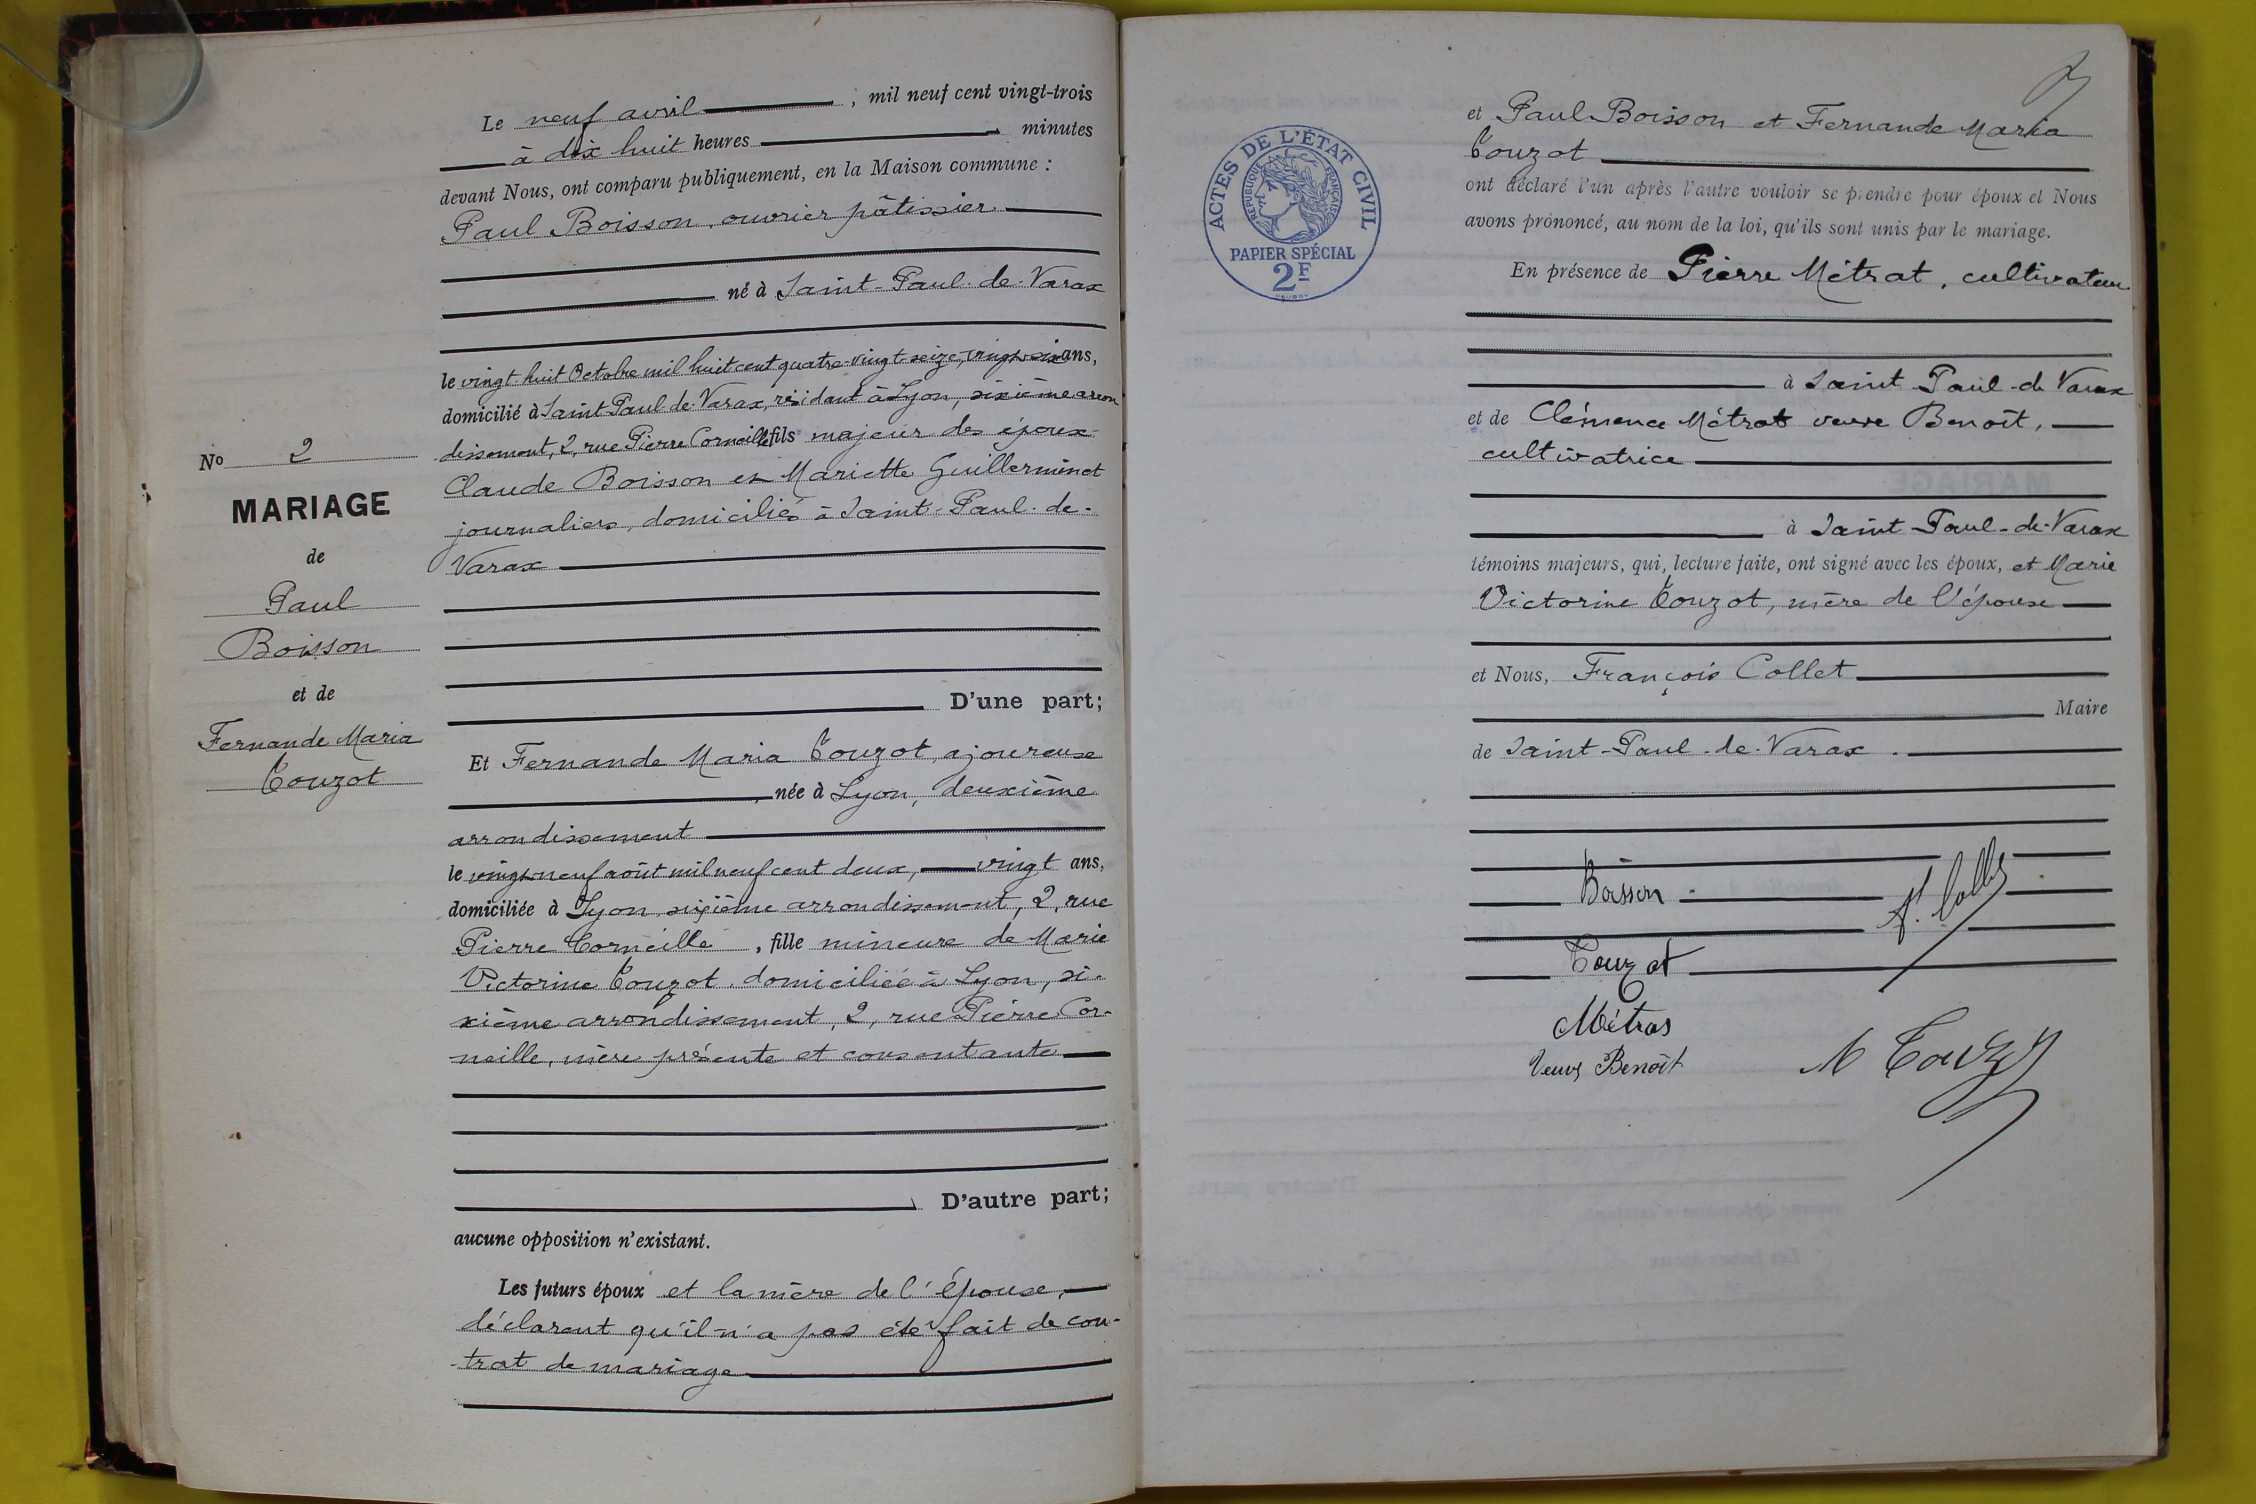 Le neuf avril ; mil neuf cent vingt-trois
à dix huit heures minutes
devant Nous, ont comparu publiquement, en la Maison commune :
Paul Boisson, ouvrier pâtissier
né à Saint-Paul-de-Varax
le vingt-huit Octobre mil huit cent quatre-vingt-seize, vingt-six ans,
domicilié à Saint Paul de Varax, résidant à Lyon, sixième arron
dissement, 2, rue Pierre Corneille fils majeur des époux
Claude Boisson et Mariette Guillerminet
journaliers, domiciliés à Saint-Paul-de-
Varax
No 2
MARIAGE
de
Paul
Boisson
et de
Fernande Maria
Touzot
D'une part;
Et Fernande Maria Touzot, ajoureuse
née à Lyon, deuxième
arrondissement
le vingt-neuf août mil neuf cent deux, vingt ans,
domiciliée à Lyon, sixième arrondissement, 2, rue
Pierre Corneille, fille mineure de Marie
Victorine Touzot, domiciliée à Lyon, si-
xième arrondissement, 2, rue Pierre Cor-
neille, mère présente et consentante
D'autre part;
aucune opposition n'existant.
Les futurs époux et la mère de l'épouse,
déclarent qu'il n'a pas été fait de con-
-trat de mariage
ACTES DE L'ÉTAT CIVIL
RÉPUBLIQUE FRANÇAISE
PAPIER SPÉCIAL
2F
et Paul Boisson et Fernande Maria
Touzot
ont déclaré l'un après l'autre vouloir se prendre pour époux et Nous
avons prononcé, au nom de la loi, qu'ils sont unis par le mariage.
En présence de Pierre Métrat, cultivateur
à Saint Paul-de Varax
et de Clémence Métrat veuve Benoît,
cultivatrice
à Saint-Paul-de-Varax
témoins majeurs, qui, lecture faite, ont signé avec les époux, et Marie
Victorine Touzot, mère de l'épouse
et Nous, François Collet
Maire
de Saint-Paul-de-Varax.
Boisson
F. Collet
Touzot
Métras
Veuve Benoît
M Touzot